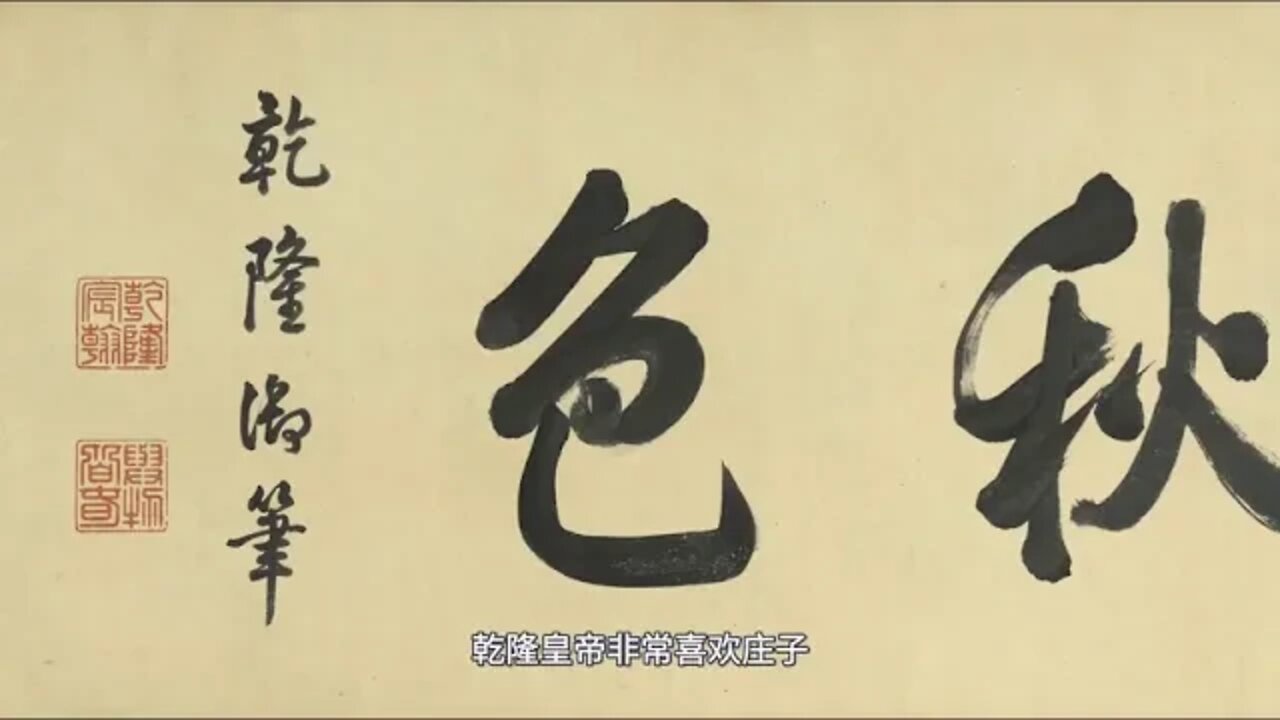 秋色
乾隆御筆
乾隆
宸翰
乾隆皇帝非常喜欢庄子